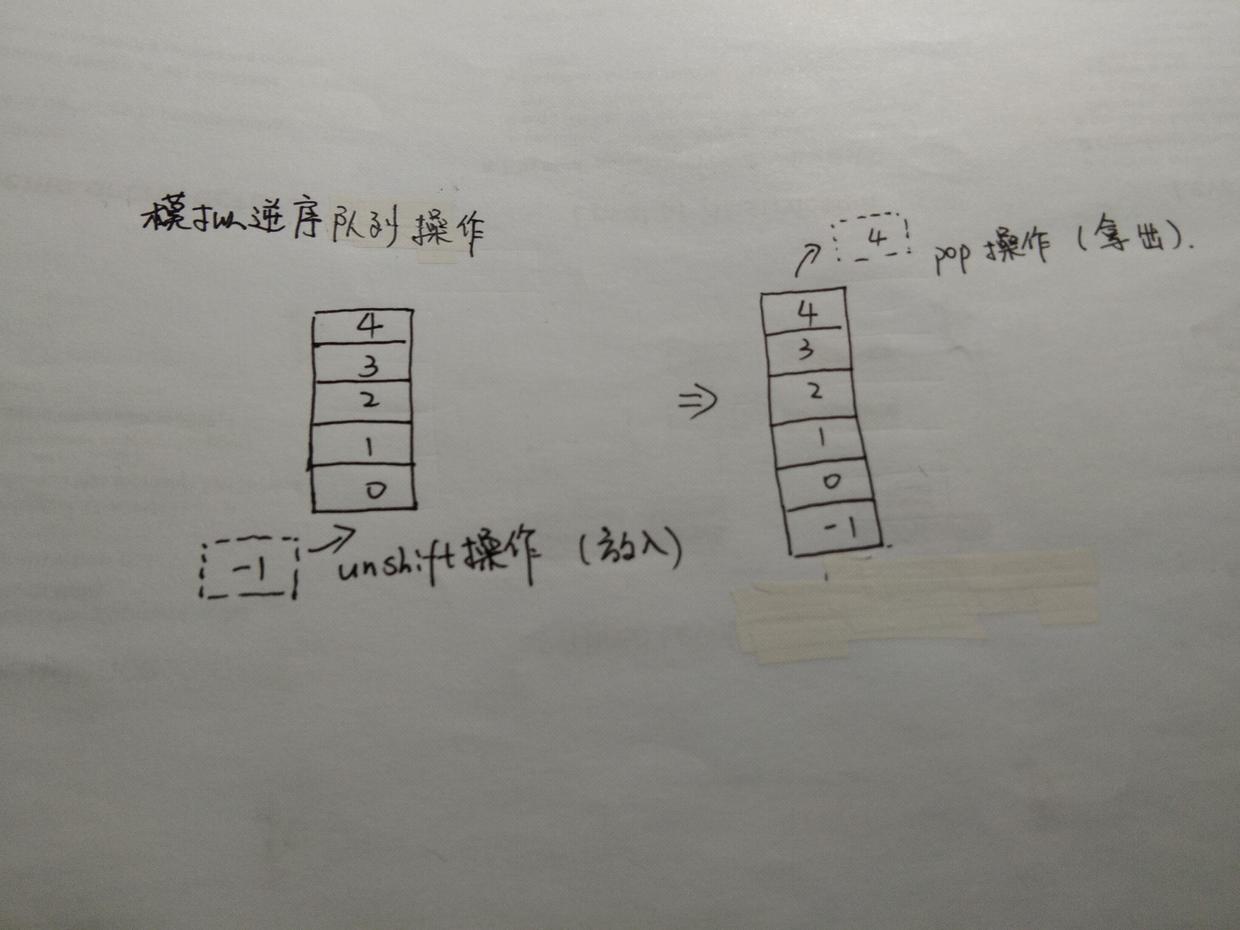 模拟逆序队列操作
4
pop 操作 (拿出).
4
3
2
1
0
-1
unshift操作 (放入)
⇒
4
3
2
1
0
-1